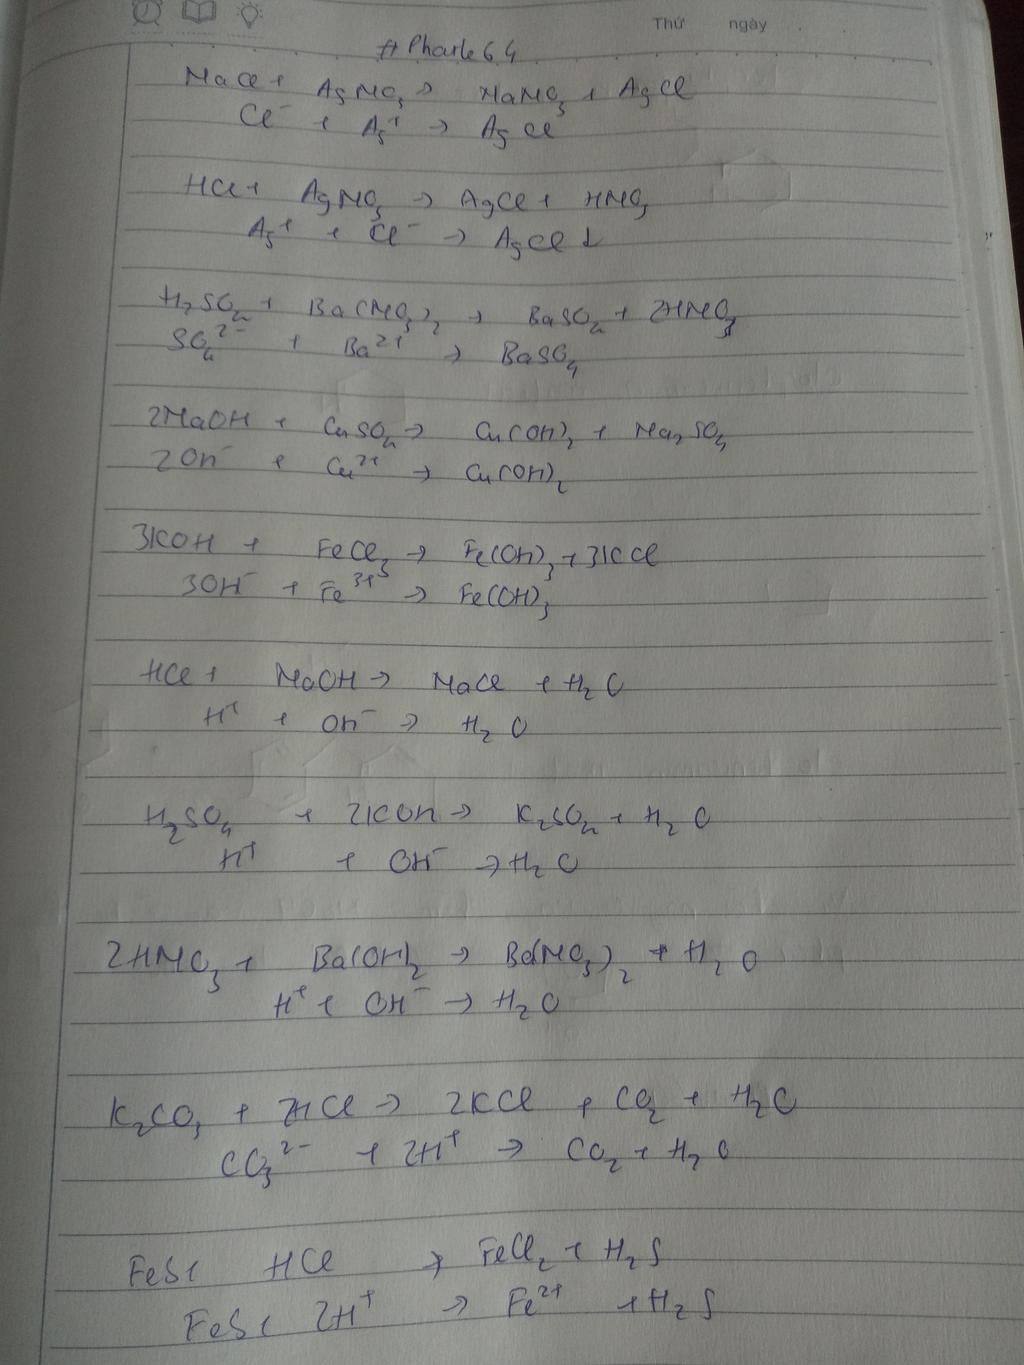 Thứ ngày
#Pharle64
NaCl + AgNO₃ → NaNO₃ + AgCl
Cl⁻ + Ag⁺ → AgCl
HCl + AgNO₃ → AgCl + HNO₃
Ag⁺ + Cl⁻ → AgCl ↓
H₂SO₄ + Ba(NO₃)₂ → BaSO₄ + 2HNO₃
SO₄²⁻ + Ba²⁺ → BaSO₄
2NaOH + CuSO₄ → Cu(OH)₂ + Na₂SO₄
2OH⁻ + Cu²⁺ → Cu(OH)₂
3KOH + FeCl₃ → Fe(OH)₃ + 3KCl
3OH⁻ + Fe³⁺ → Fe(OH)₃
HCl + NaOH → NaCl + H₂O
H⁺ + OH⁻ → H₂O
H₂SO₄ + 2KOH → K₂SO₄ + H₂O
H⁺ + OH⁻ → H₂O
2HNO₃ + Ba(OH)₂ → Ba(NO₃)₂ + H₂O
H⁺ + OH⁻ → H₂O
K₂CO₃ + 2HCl → 2KCl + CO₂ + H₂O
CO₃²⁻ + 2H⁺ → CO₂ + H₂O
FeS + HCl → FeCl₂ + H₂S
FeS + 2H⁺ → Fe²⁺ + H₂S